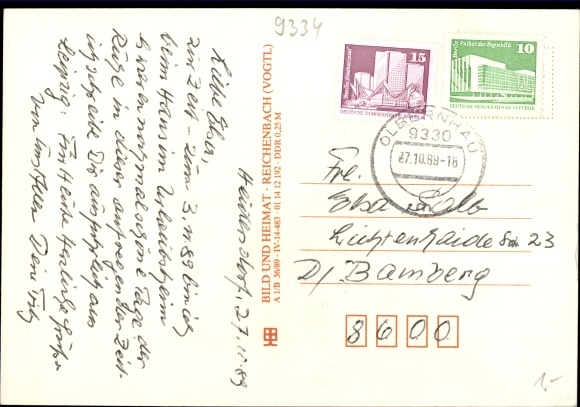 9334
Heidersdorf, 27.10.89
Liebe Elsa,
zur Zeit - zum 3. m 89 bin ich
beim Hans im Urlaubsheim
Tage der
Ruhe in dieser aufregenden Zeit.
Dir ausführlich aus
Leipzig. Für Heute Herzliche Grüße
Dein Fritz
BILD UND HEIMAT · REICHENBACH (VOGTL)
A 1/B 36/89 · IV-14-483 · 01 14 12 192 · DDR 0,25 M
Berlin
15
DEUTSCHE DEMOKRATISCHE REPUBLIK
Berlin, Palast der Republik
10
DEUTSCHE DEMOKRATISCHE REPUBLIK
OLBERNHAU
9330
27.10.89-18
Frl.
Elsa Kolb
Lichtenhaide Str 23
D/ Bamberg
8600
1,-